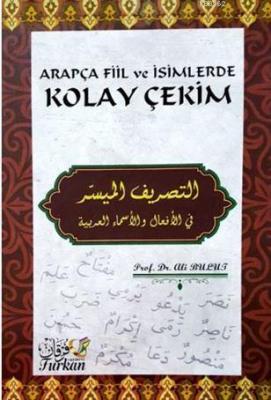 ARAPÇA FİİL ve İSİMLERDE
KOLAY ÇEKİM
التصريف الميسّر
في الأفعال والأسماء العربية
Prof. Dr. Ali BULUT
مفتاح علم
نصر يدعو يرمي ضرب
ناصر رمى إكرام حسن
منصور دعا مكرم
فرقان
Furkan